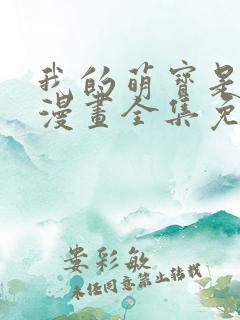 我的萌寳是
漫畫全集免
娄彩敏
未经同意禁止转载